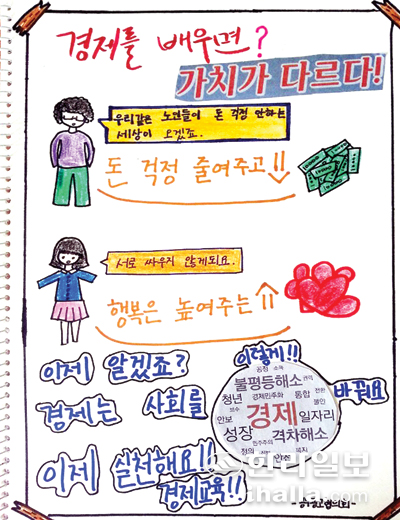 경제를 배우면?
가치가 다르다!
우리같은 노인들이 돈 걱정 안하는
세상이 오겠죠.
돈 걱정 줄여주고
서로 싸우지 않게되요.
행복은 높여주는
이제 알겠죠?
경제는 사회를
이렇게!!
바꿔요
공정 소득
불평등해소
청년 경제민주화 통합 전환
보수 불안
안보 경제 일자리
성장 격차해소
민주주의
정의 복지
안전
이제 실천해요!!
경제교육!!
한라일보
ihalla.com